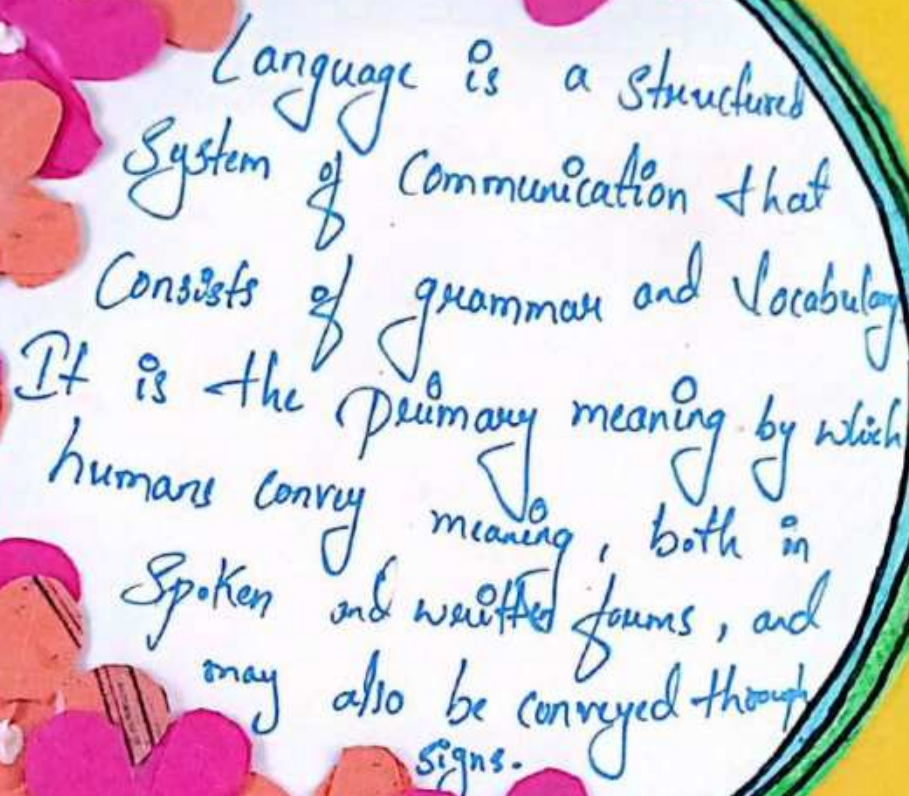 Language is a structured
System of Communication that
Consists of grammar and Vocabulary.
It is the primary meaning by which
humans convey meaning, both in
Spoken and written forms, and
may also be conveyed through
signs.